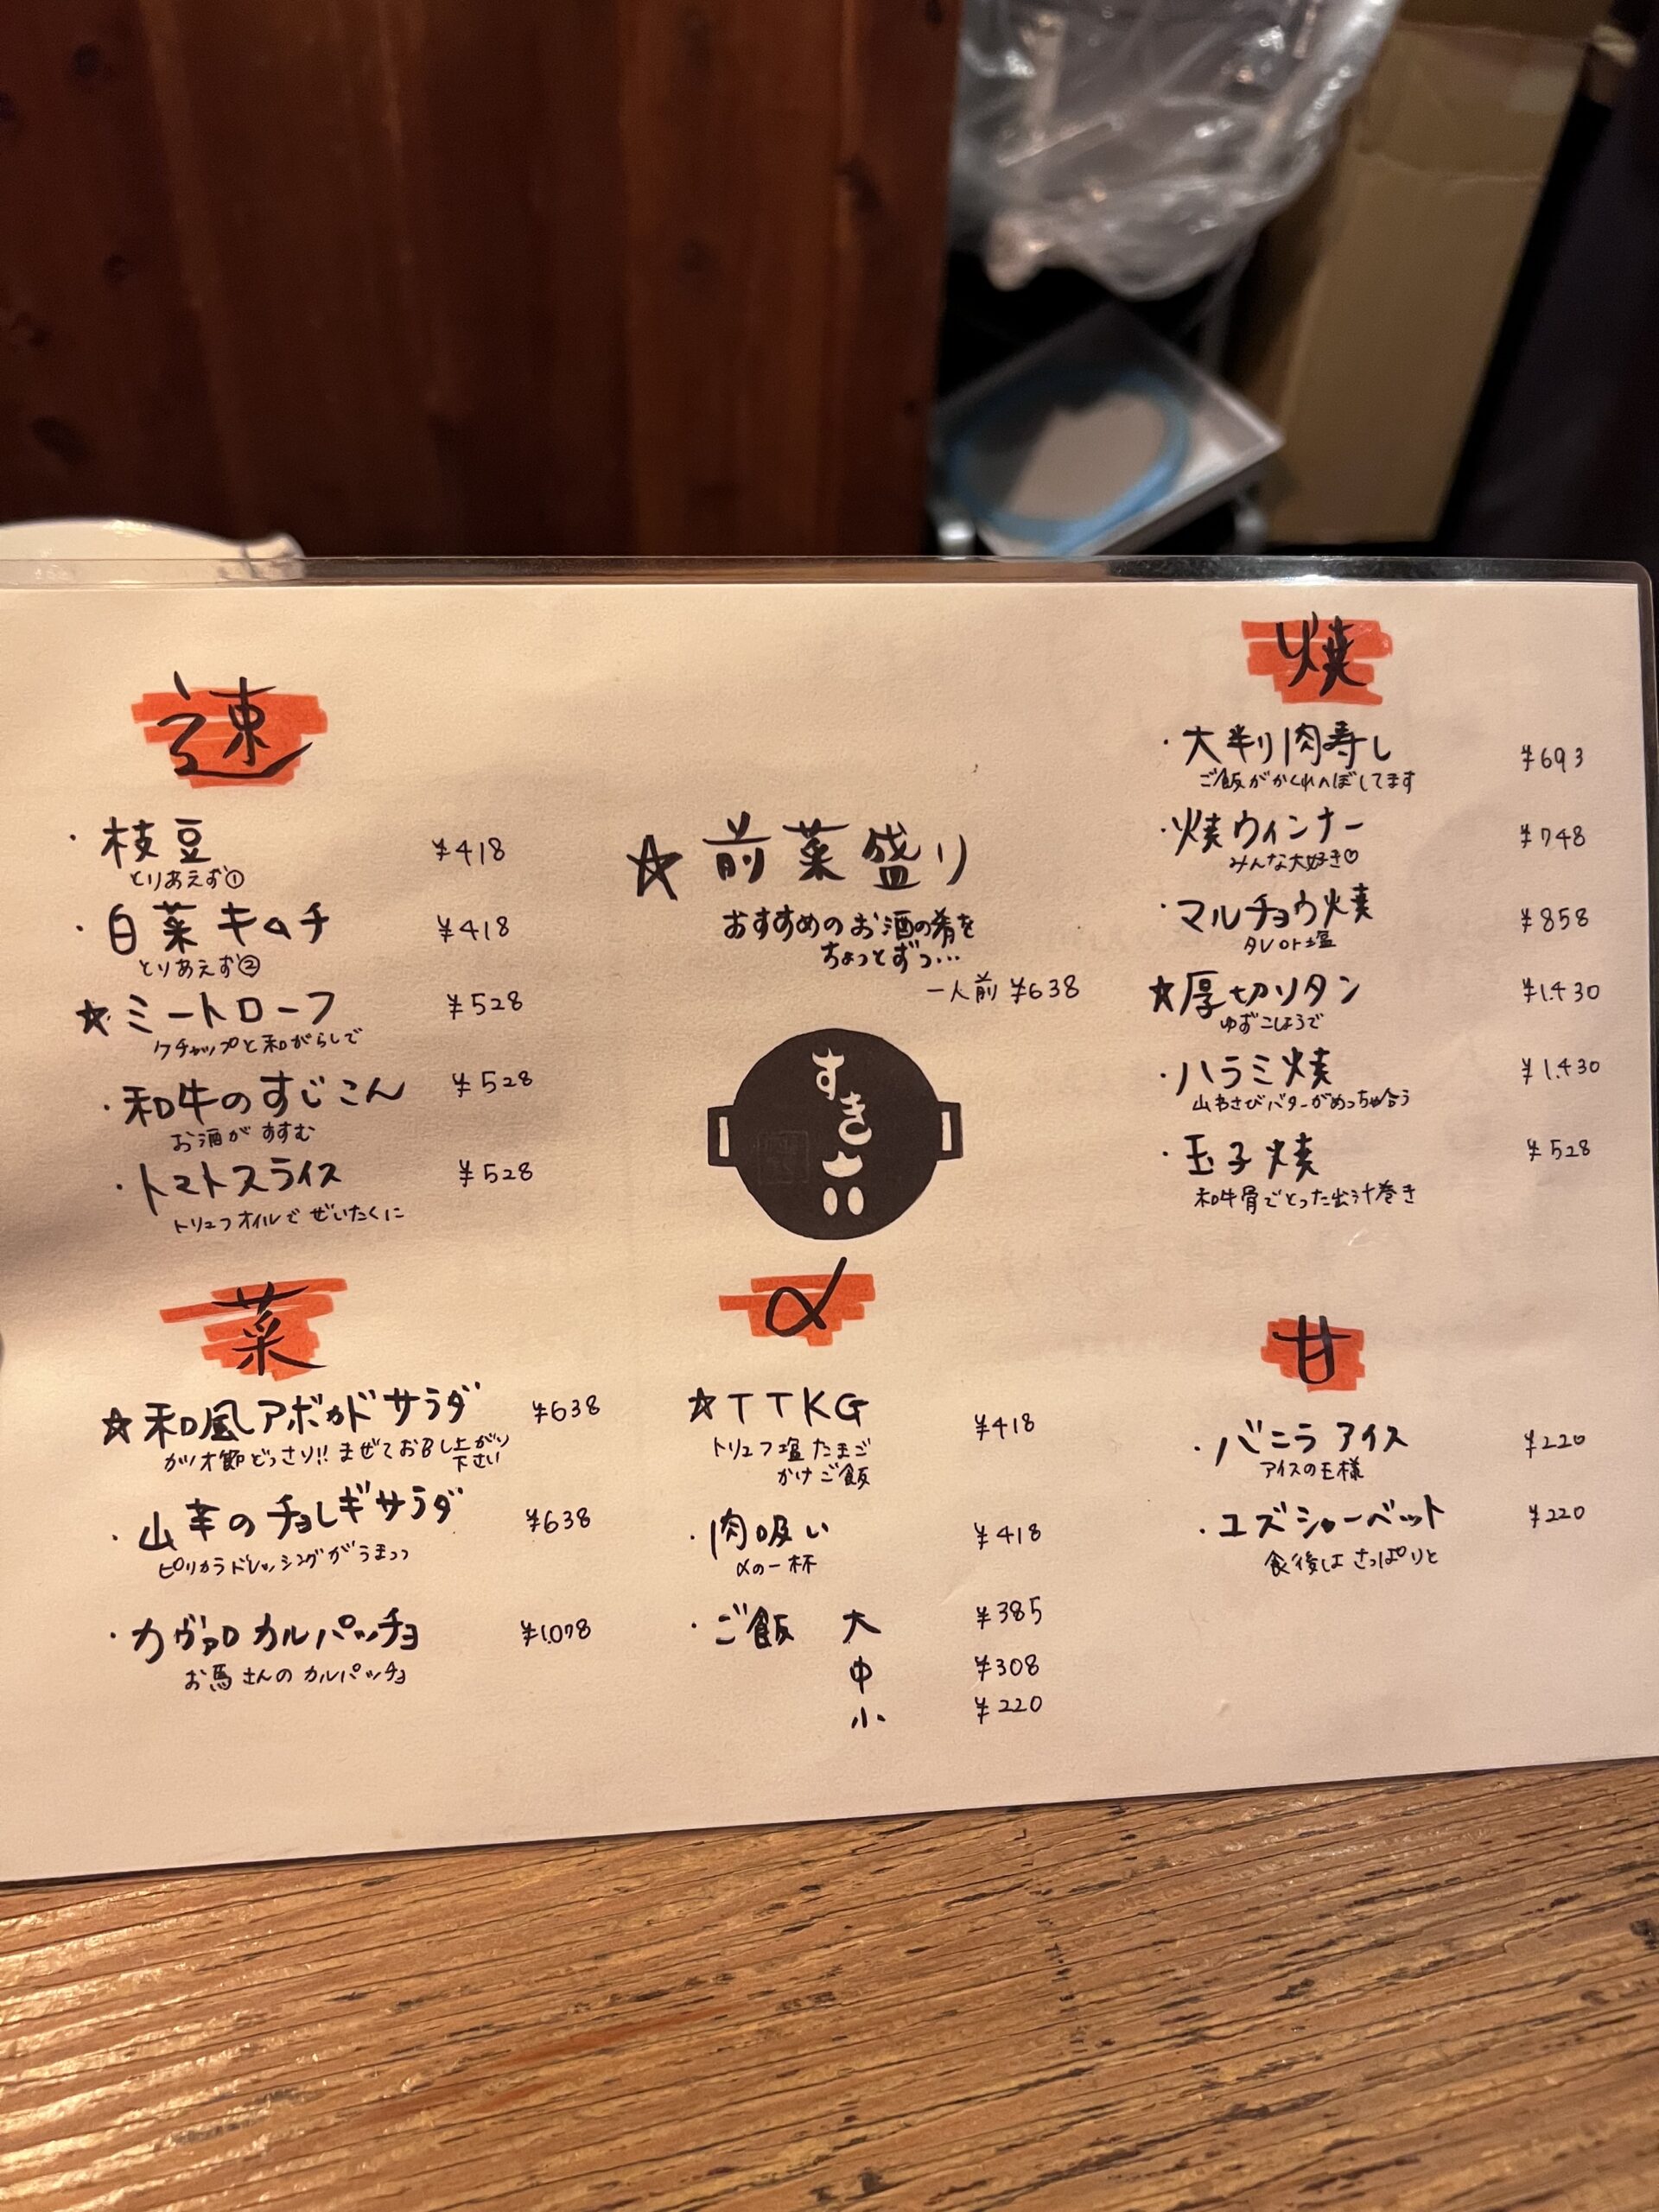 速
・枝豆 ¥418
とりあえず①
・白菜キムチ ¥418
とりあえず②
☆ミートローフ ¥528
ケチャップと和がらしで
・和牛のすじこん ¥528
お酒がすすむ
・トマトスライス ¥528
トリュフオイルでぜいたくに
菜
☆和風アボカドサラダ ¥638
カツオ節どっさり!!まぜてお召し上がり
下さい
・山芋のチョレギサラダ ¥638
ピリカラドレッシングがうまっっ
・カヴァロカルパッチョ ¥1.078
お馬さんのカルパッチョ
☆前菜盛り
おすすめのお酒の肴を
ちょっとずつ…
一人前 ¥638
すき六
〆
☆TTKG ¥418
トリュフ塩たまご
かけご飯
・肉吸い ¥418
〆の一杯
・ご飯 大 ¥385
中 ¥308
小 ¥220
焼
・大判肉寿し ¥693
ご飯がかくれんぼしてます
・焼ウィンナー ¥748
みんな大好き♡
・マルチョウ焼 ¥858
タレor塩
☆厚切りタン ¥1.430
ゆずこしょうで
・ハラミ焼 ¥1.430
山わさびバターがめっちゃ合う
・玉子焼 ¥528
和牛骨でとった出汁巻き
甘
・バニラアイス ¥220
アイスの王様
・ユズシャーベット ¥220
食後はさっぱりと